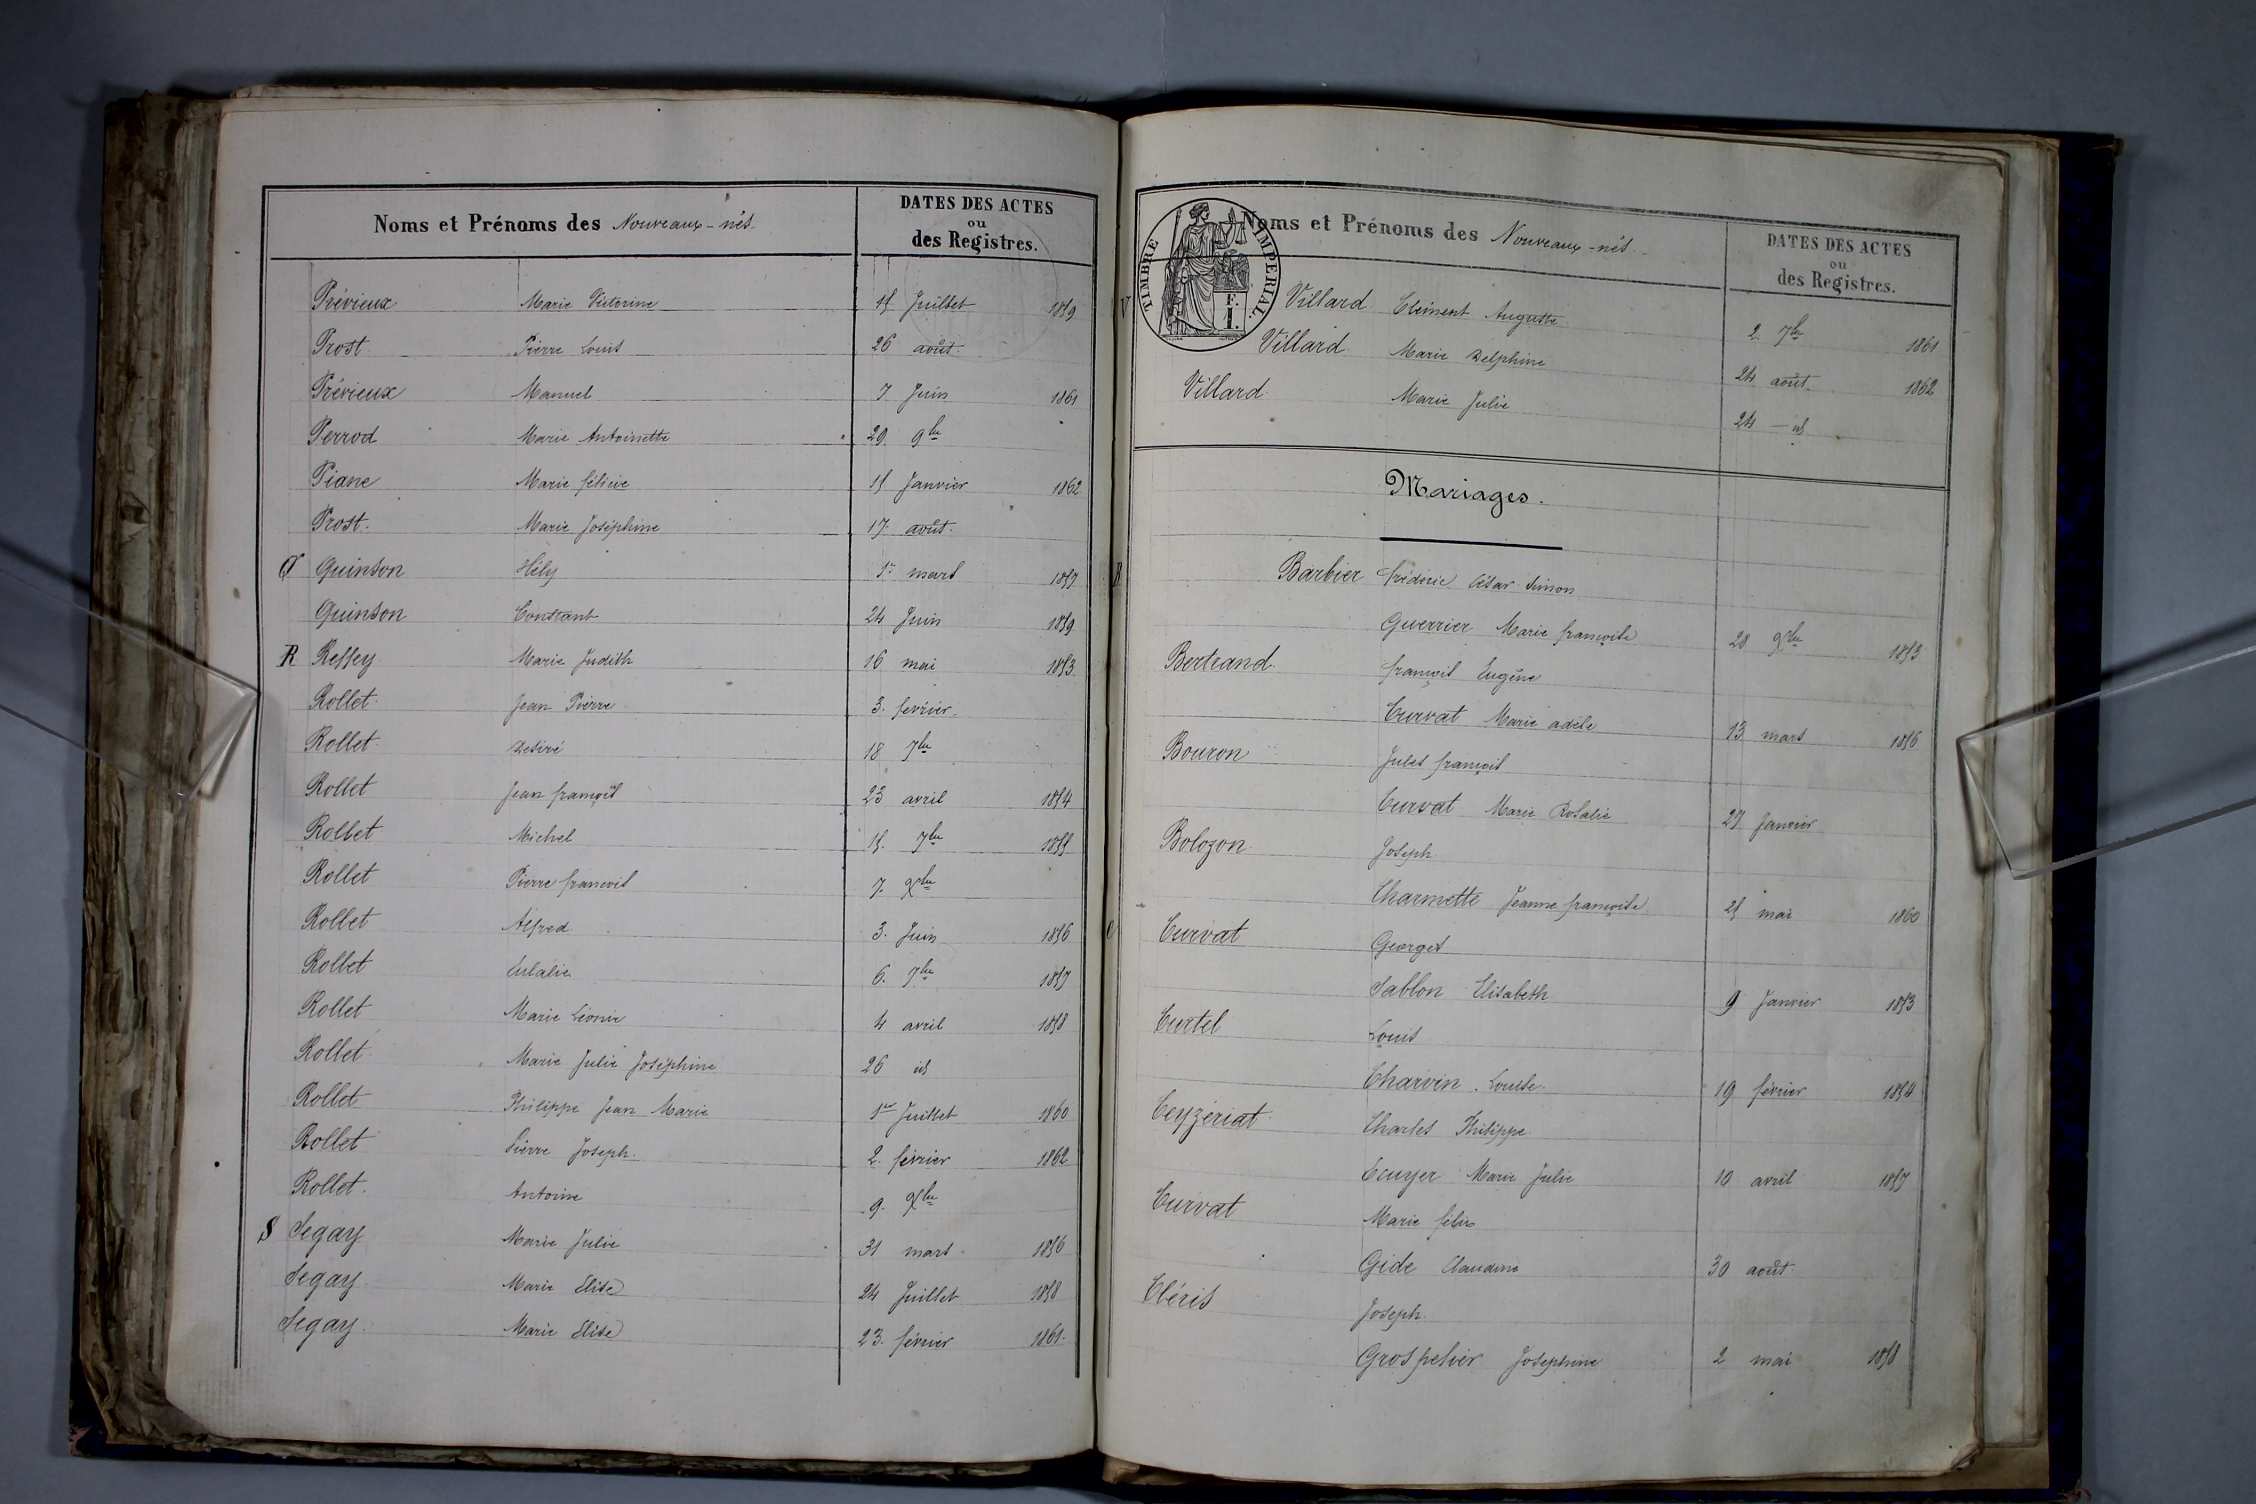 Noms et Prénoms des Nouveaux-nés. DATES DES ACTES
ou
des Registres.
Prévieux Marie Victorine 15 Juillet 1859
Prost Pierre Louis 26 août.
Prévieux Manuel 7 Juin 1861
Perrod Marie Antoinette 29. 9bre
Piane Marie félicie 15 Janvier 1862
Prost. Marie Joséphine 17. août.
Q Quinson Hély 1er mars 1857
Quinson Constant 24 Juin 1859
R Reffey Marie Judith 16 mai 1853
Rollet Jean Pierre 3. février.
Rollet Desiré 18 7bre
Rollet Jean françois 23 avril 1854
Rollet Michel 15. 7bre 1855
Rollet Pierre francois 7. Xbre
Rollet Alfred 3. Juin 1856
Rollet Eulalie 6. 7bre 1857
Rollet Marie Léonie 4 avril 1858
Rollet Marie Julie Joséphine 26 id
Rollet Philippe Jean Marie 1er Juillet 1860
Rollet Pierre Joseph. 2. février 1862
Rollet. Antoine 9. Xbre
S Segay Marie Julie 31 mars 1856
Segay Marie Elise 24 Juillet 1858
Segay. Marie Elise 23. février 1861.
Noms et Prénoms des Nouveaux-nés. DATES DES ACTES
ou
des Registres.
TIMBRE IMPERIAL.
F.
I.
V Villard Clément Auguste 2. 7bre 1861
Villard Marie Delphine 24 août 1862
Villard Marie Julie 24 — id
Mariages.
B Barbier frédéric César Simon
Guerrier Marie françoise 28 Xbre 1853
Bertrand françois Eugène
Curvat Marie adèle 13 mars 1856
Bouron Jules françois
Curvat Marie Rosalie 27 Janvier
Bolozon Joseph
Charmette Jeanne françoise 25 mai 1860
C Curvat Georges
Sablon Elisabeth 9 Janvier 1853
Curtel Louis
Charvin Louise 19 février 1854
Ceyzériat Charles Philippe
Ecuyer Marie Julie 10 avril 1857
Curvat Marie félix
Gide Claudine 30 août.
Cléris Joseph.
Grospelier Josephine 2 mai 1858